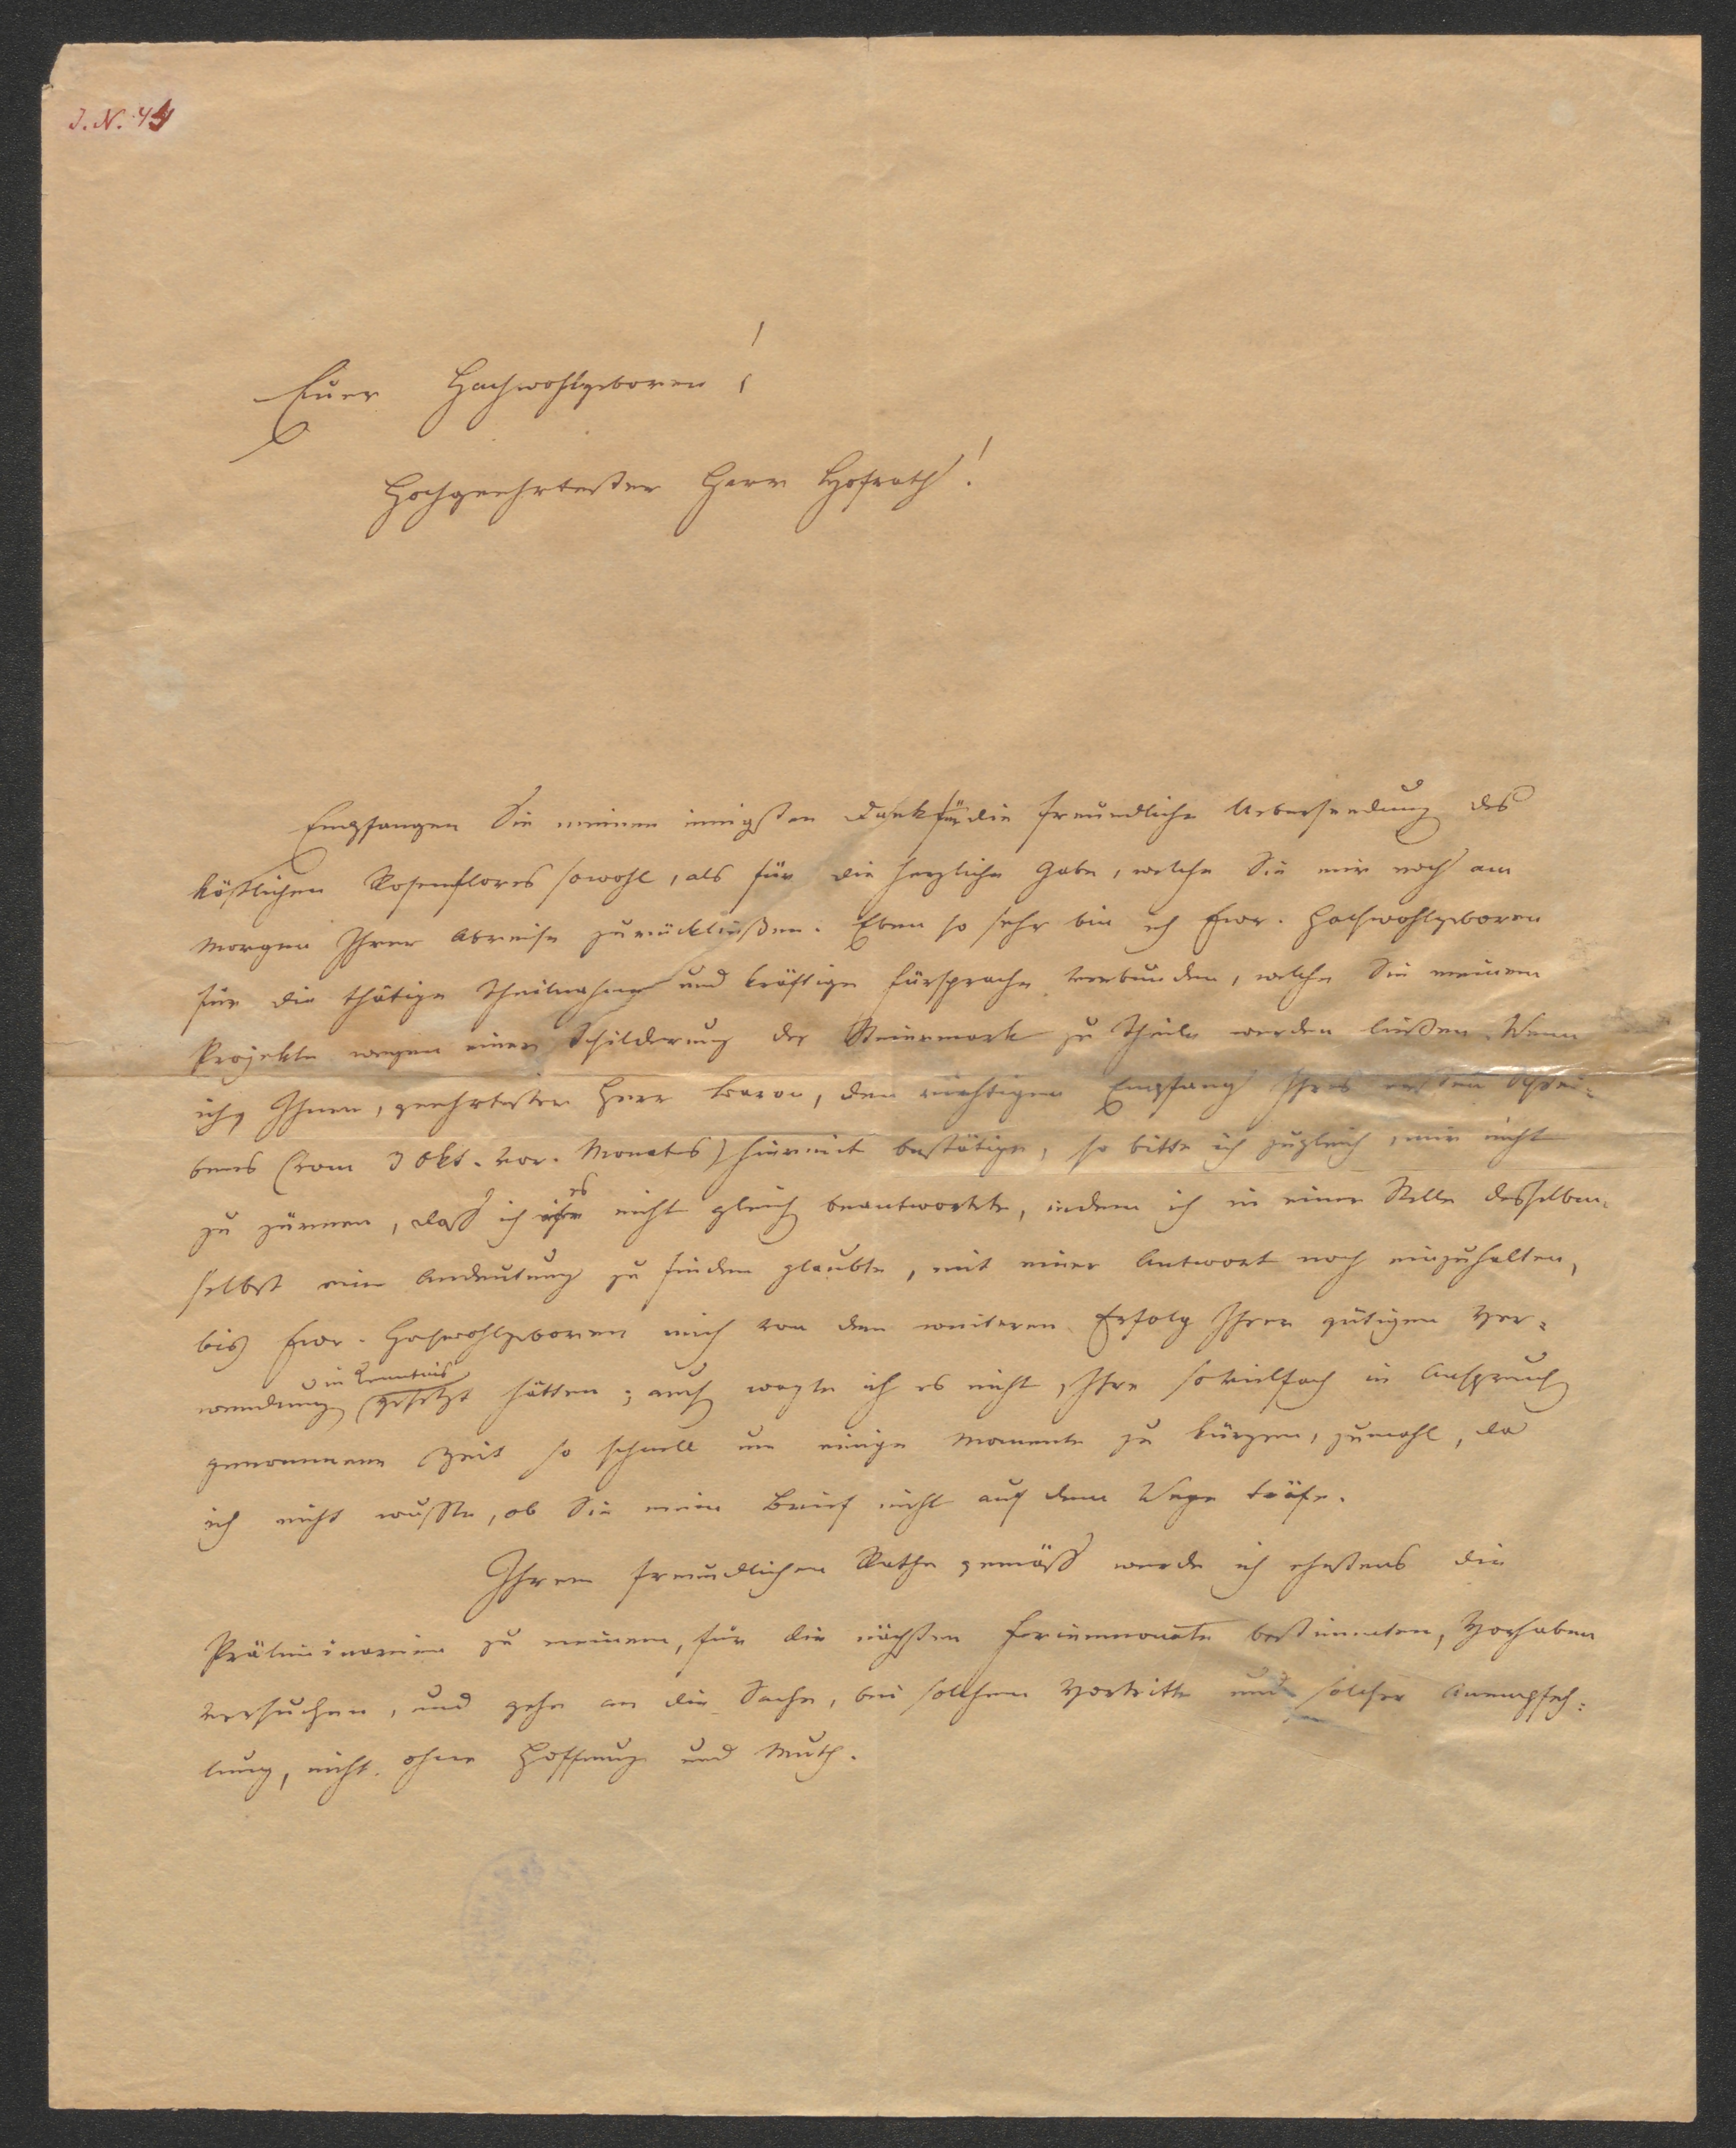 J. N. 44
Euer Hochwohlgeboren!
Hochgeehrtester Herr Hofrath!
Empfangen Sie meinen innigsten Dank für die freundliche Uebersendung des
köstlichen Rosenflores sowohl, als für die herzliche Gabe, welche Sie mir noch am
Morgen Ihrer Abreise zurückließen. Eben so sehr bin ich Euer. Hochwohlgeboren
für die thätige Theilnahme und kräftige Fürsprache verbunden, welche Sie meinem
Projekte wegen einer Schilderung der Steiermark zu Theile werden ließen. Wenn
ich Ihnen, geehrtester Herr Baron, den richtigen Empfang Ihres ersten Schrei-
bens (vom 3 Okt. vor. Monates) hiermit bestätige, so bitte ich zugleich, mir nicht
zu zürnen, daß ich es nicht gleich beantwortete, indem ich in einer Stelle desselben
selbst eine Andeutung zu finden glaubte, mit einer Antwort noch einzuhalten,
bis Euer. Hochwohlgeboren mich von dem weiteren Erfolg Ihrer gütigen Ver-
wendung in Kenntnis gesetzt hätten; auch wagte ich es nicht, Ihre so vielfach in Anspruch
genommene Zeit so schnell um einige Momente zu kürzen, zumahl, da
ich nicht wußte, ob Sie mein Brief nicht auf dem Wege träfe.
Ihrem freundlichen Rathe gemäß werde ich ehestens die
Präliminarien zu meinem, für die nächsten Ferienmonate bestimmten, Vorhaben
versuchen, und gehe an die Sache, bei solchem Vortritte und solcher Anempfeh-
lung, nicht ohne Hoffnung und Muth.